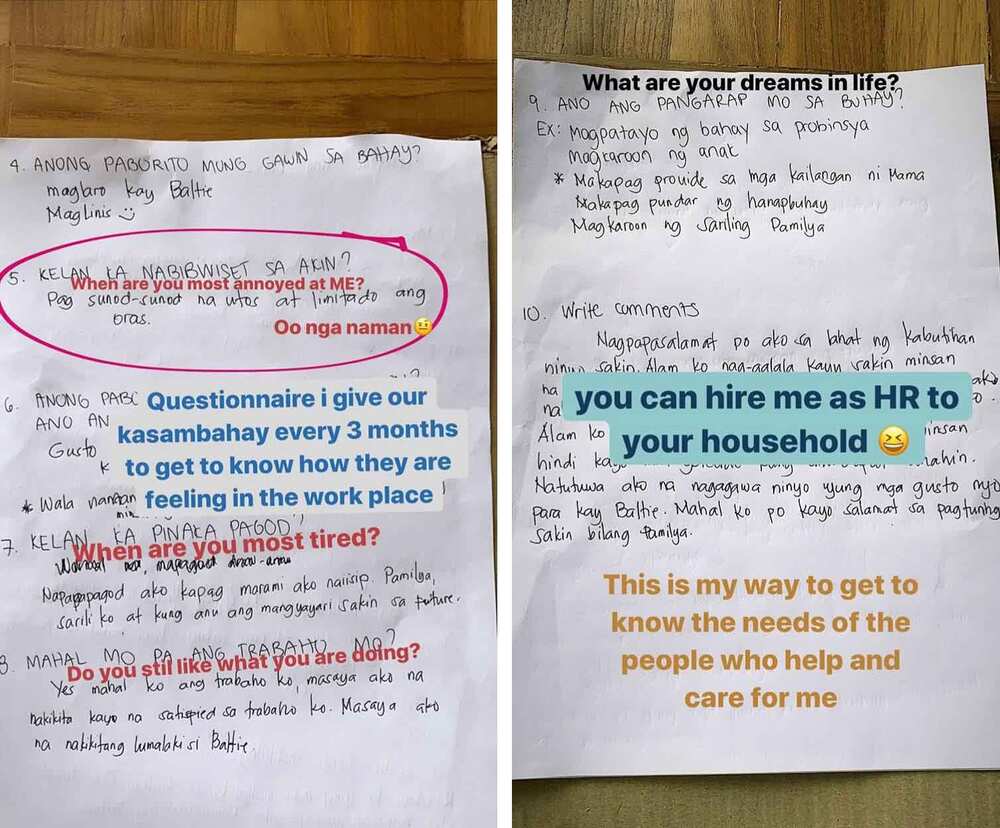 4. ANONG PABORITO MUNG GAWIN SA BAHAY?
maglaro kay Baltie
Maglinis
5. KELAN KA NABIBWISET SA AKIN?
When are you most annoyed at ME?
Pag sunod-sunod na utos at limitado ang
oras.
Oo nga naman
6. ANONG
ANO
Gusto
Questionnaire i give our
kasambahay every 3 months
to get to know how they are
feeling in the work place
* Wala naman
7. KELAN KA PINAKA PAGOD?
When are you most tired?
Napapapagod ako kapag marami ako naiisip. Pamilya,
sarili ko at kung anu ang mangyayari sakin sa future.
8. MAHAL MO PA ANG TRABAHO MO?
Do you still like what you are doing?
Yes mahal ko ang trabaho ko, masaya ako na
nakikita kayo na satispied sa trabaho ko. Masaya ako
na nakikitang lumalaki si Baltie.
What are your dreams in life?
9. ANO ANG PANGARAP MO SA BUHAY?
Ex: Magpatayo ng bahay sa probinsya
magkaroon ng anak
* Makapag provide sa mga kailangan ni Mama
Makapag pundar ng hanapbuhay
Magkaroon ng sariling Pamilya
10. Write comments
Nagpapasalamat po ako sa lahat ng kabutihan
ninyo sakin. Alam ko nag-aalala kayo sakin minsan
na
ako
you can hire me as HR to
your household
Alam ko
minsan
hindi
Natutuwa ako na nagagawa ninyo yung mga gusto nyo
para kay Baltie. Mahal ko po kayo salamat sa pagturing
sakin bilang Pamilya.
This is my way to get to
know the needs of the
people who help and
care for me